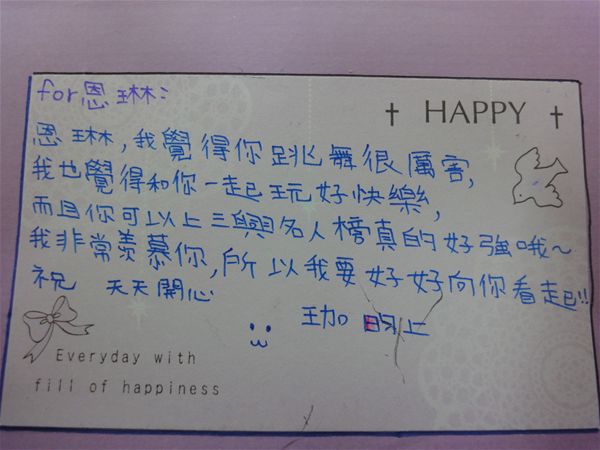 for恩琳:
† HAPPY †
恩琳,我覺得你跳舞很厲害,
我也覺得和你一起玩好快樂,
而且你可以上三興名人榜真的好強哦~
我非常羨慕你,所以我要好好向你看起!!
祝 天天開心
珈 昀上
Everyday with
fill of happiness